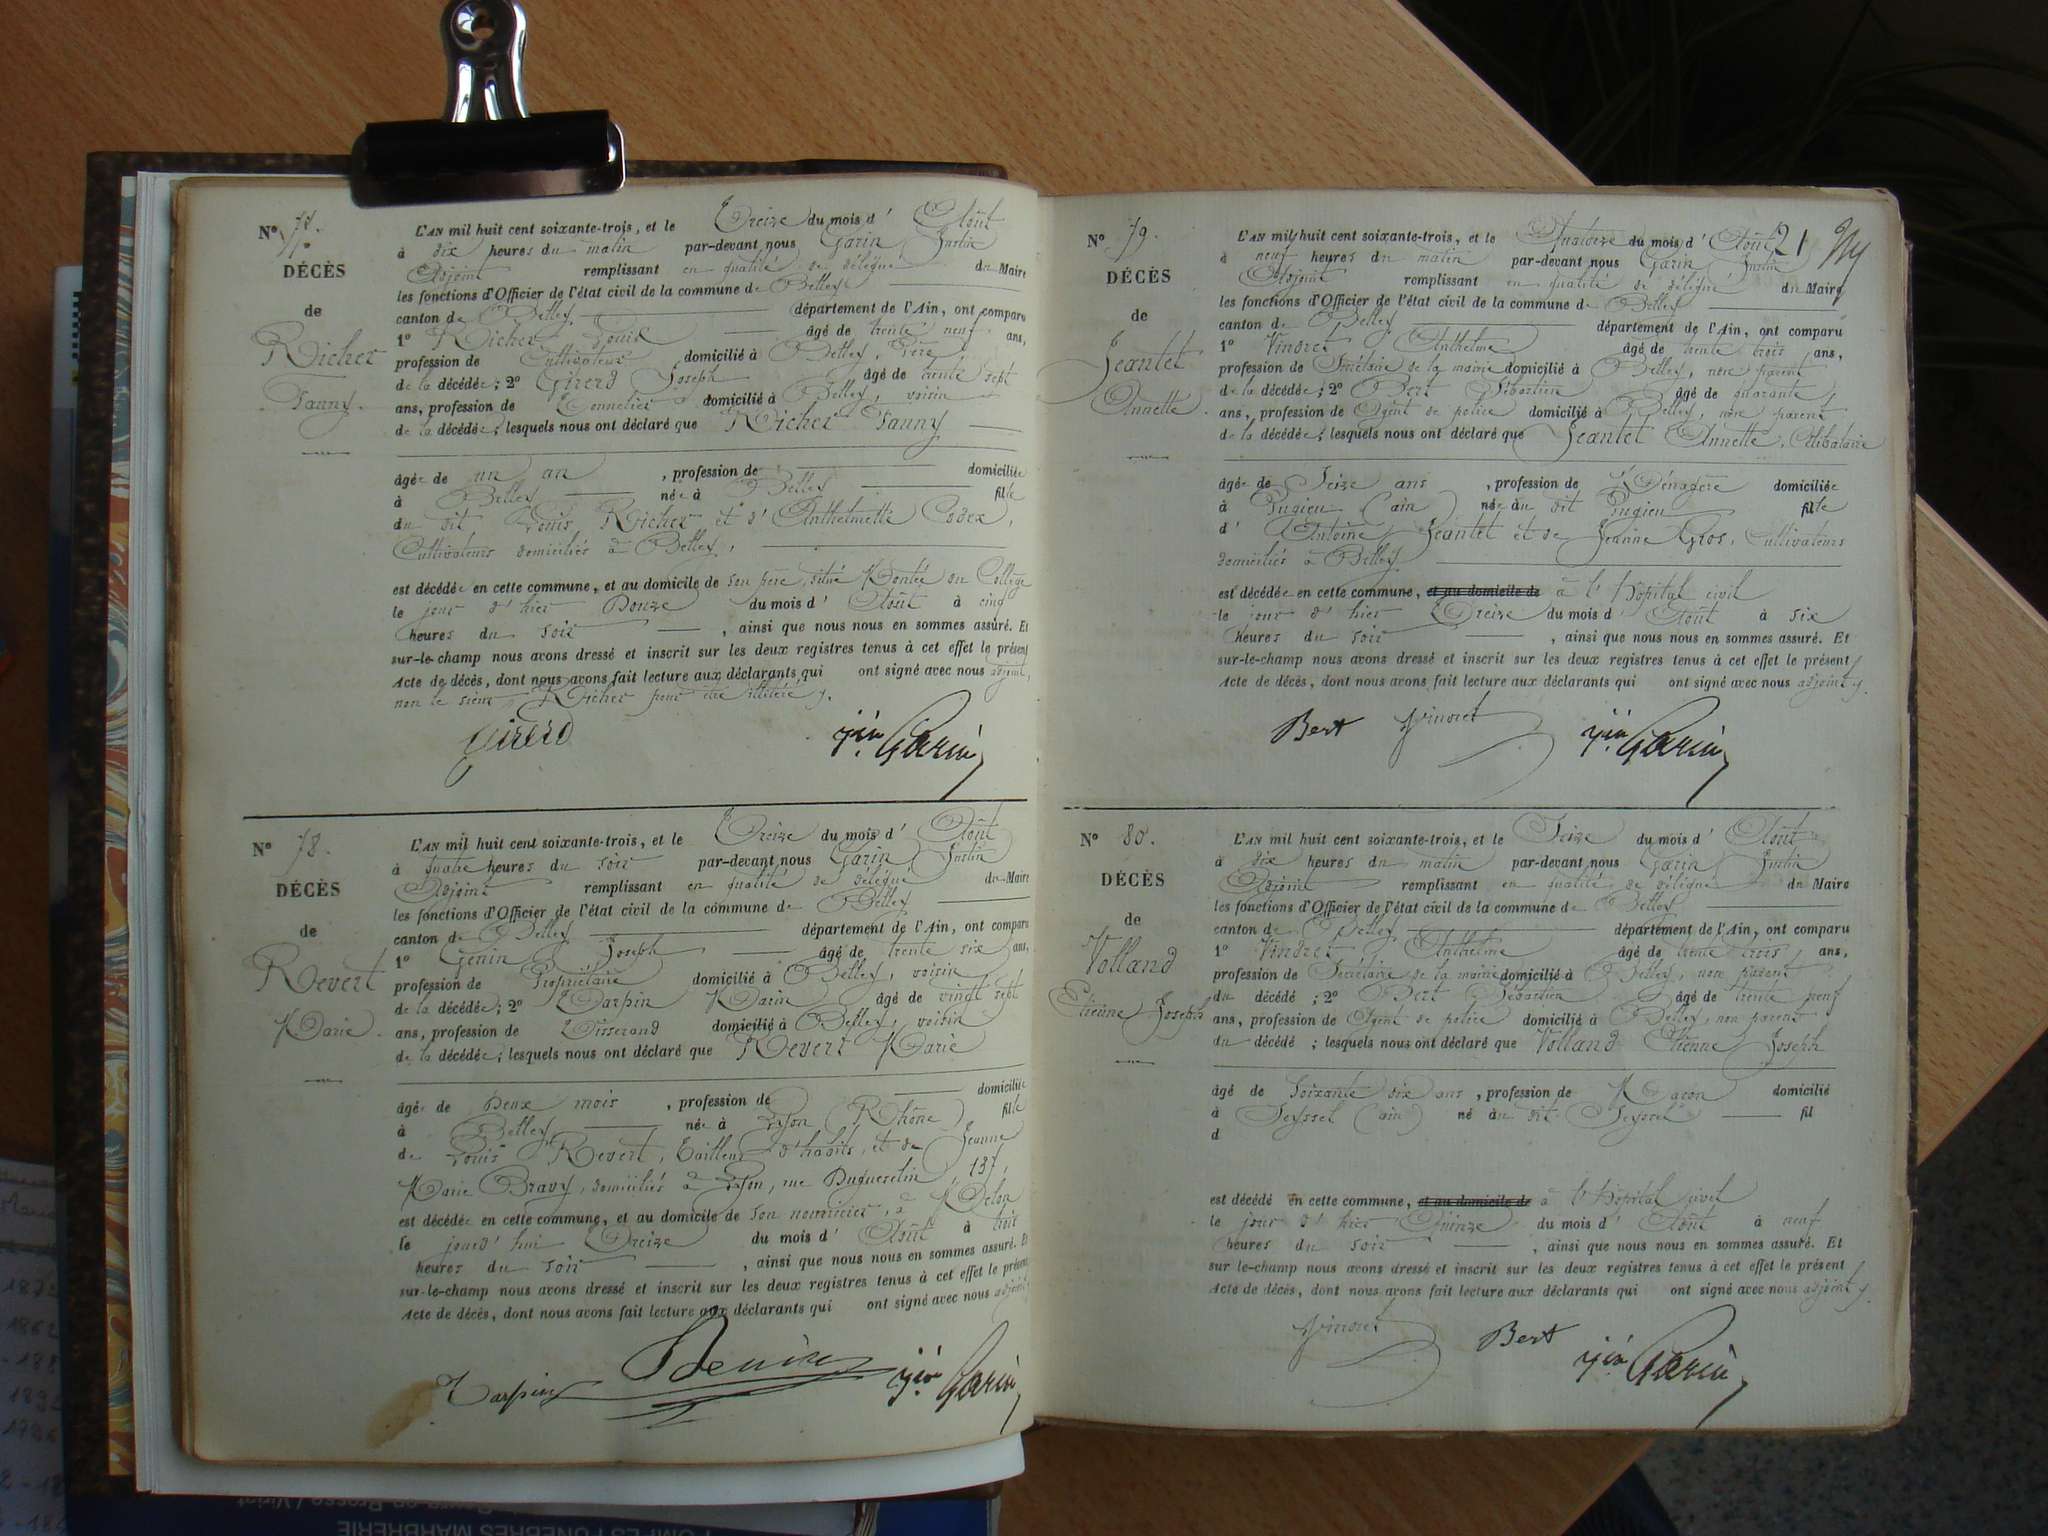 N° 77.
DÉCÈS
de
Richer
Fanny.
L'AN mil huit cent soixante-trois, et le Treize du mois d' Août
à dix heures du matin par-devant nous Garin Justin
Adjoint remplissant en qualité de délégué du Maire
les fonctions d'Officier de l'état civil de la commune de Belley
canton de Belley département de l'Ain, ont comparu
1° Richer Louis âgé de trente neuf ans,
profession de Cultivateur domicilié à Belley, Père
de la décédée; 2° Girerd Joseph âgé de trente sept
ans, profession de Tonnelier domicilié à Belley, voisin
de la décédée; lesquels nous ont déclaré que Richer Fanny
âgée de un an , profession de domiciliée
à Belley née à Belley fille
du dit Louis Richer et d'Anthelmette Codex,
Cultivateurs domiciliés à Belley,
est décédée en cette commune, et au domicile de son père, situé Montée du Collège
le jour d'hier Douze du mois d' Août à cinq
heures du soir , ainsi que nous nous en sommes assuré. Et
sur-le-champ nous avons dressé et inscrit sur les deux registres tenus à cet effet le présent
Acte de décès, dont nous avons fait lecture aux déclarants qui ont signé avec nous adjoint,
non le sieur Richer pour être illitéré.
Girerd jin Garin
N° 78.
DÉCÈS
de
Revert
Marie.
L'AN mil huit cent soixante-trois, et le Treize du mois d' Août
à quatre heures du soir par-devant nous Garin Justin
Adjoint remplissant en qualité de délégué du Maire
les fonctions d'Officier de l'état civil de la commune de Belley
canton de Belley département de l'Ain, ont comparu
1° Génin Joseph âgé de trente six ans,
profession de Propriétaire domicilié à Belley, voisin
de la décédée; 2° Tarpin Marin âgé de vingt sept
ans, profession de Tisserand domicilié à Belley, voisin
de la décédée; lesquels nous ont déclaré que Revert Marie
âgée de Deux mois , profession de domiciliée
à Belley née à Lyon (Rhône) fille
de Louis Revert, Tailleur d'habits, et de Jeanne
Marie Bravy, domiciliés à Lyon, rue Duguesclin 137,
est décédée en cette commune, et au domicile de son nourricier, à Melon
le jourd'hui Treize du mois d' Août à trois
heures du soir , ainsi que nous nous en sommes assuré. Et
sur-le-champ nous avons dressé et inscrit sur les deux registres tenus à cet effet le présent
Acte de décès, dont nous avons fait lecture aux déclarants qui ont signé avec nous adjoint
Tarpin Genin jin Garin
21
N° 79.
DÉCÈS
de
Jeantet
Annette.
L'AN mil huit cent soixante-trois, et le Quatorze du mois d' Août
à neuf heures du matin par-devant nous Garin Justin
Adjoint remplissant en qualité de délégué du Maire
les fonctions d'Officier de l'état civil de la commune de Belley
canton de Belley département de l'Ain, ont comparu
1° Vindret Anthelme âgé de trente trois ans,
profession de Secrétaire de la mairie domicilié à Belley, non parent
de la décédée; 2° Bert Sébastien âgé de quarante
ans, profession de Agent de police domicilié à Belley, non parent
de la décédée; lesquels nous ont déclaré que Jeantet Annette, Célibataire
âgée de Seize ans , profession de Ménagère domiciliée
à Pugieu (ain) née au dit Pugieu fille
d' Antoine Jeantet et de Jeanne Gros, Cultivateurs
domiciliés à Belley
est décédée en cette commune, et au domicile de à l'hôpital civil
le jour d'hier Treize du mois d' Août à six
heures du soir , ainsi que nous nous en sommes assuré. Et
sur-le-champ nous avons dressé et inscrit sur les deux registres tenus à cet effet le présent
Acte de décès, dont nous avons fait lecture aux déclarants qui ont signé avec nous adjoint
Bert Vindret jin Garin
N° 80.
DÉCÈS
de
Volland
Etienne Joseph
L'AN mil huit cent soixante-trois, et le Seize du mois d' Août
à dix heures du matin par-devant nous Garin Justin
Adjoint remplissant en qualité de délégué du Maire
les fonctions d'Officier de l'état civil de la commune de Belley
canton de Belley département de l'Ain, ont comparu
1° Vindret Anthelme âgé de trente trois ans,
profession de Secrétaire de la mairie domicilié à Belley, non parent
du décédé ; 2° Bert Sébastien âgé de trente neuf
ans, profession de Agent de police domicilié à Belley, non parent
du décédé ; lesquels nous ont déclaré que Volland Etienne Joseph
âgé de Soixante dix ans , profession de Maçon domicilié
à Seyssel (ain) né au dit Seyssel fil
d
est décédé en cette commune, et au domicile de à l'hôpital civil
le jour d'hier Quinze du mois d' Août à neuf
heures du soir , ainsi que nous nous en sommes assuré. Et
sur le-champ nous avons dressé et inscrit sur les deux registres tenus à cet effet le présent
Acte de décès, dont nous avons fait lecture aux déclarants qui ont signé avec nous adjoint
Vindret Bert jin Garin
POMPES FUNÈBRES MARBRERIE